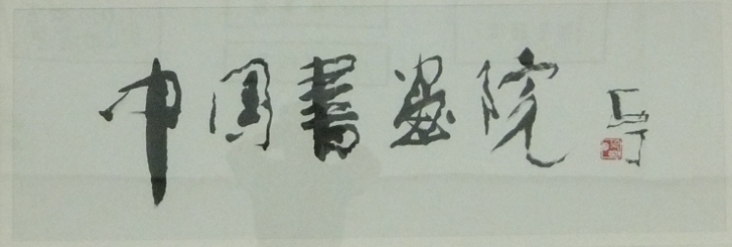 中国書畫院